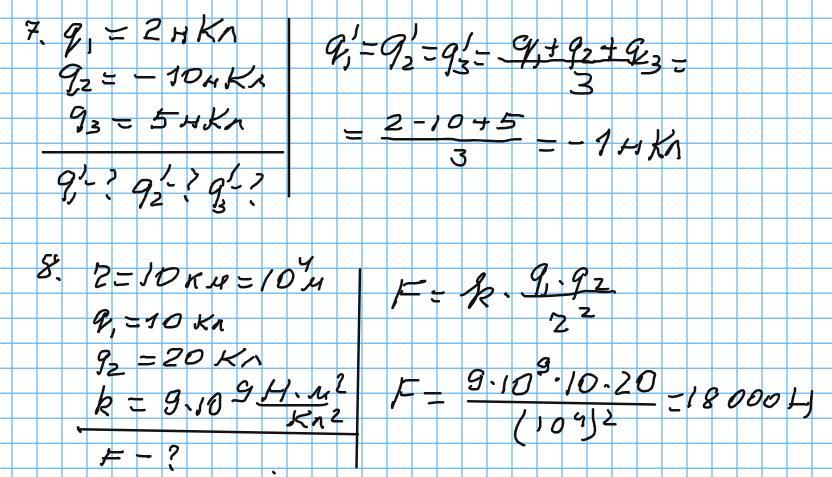 7. q₁ = 2 нКл
q₂ = - 10нКл
q₃ = 5нКл
q₁' - ? q₂' - ? q₃' - ?
q₁' = q₂' = q₃' = (q₁ + q₂ + q₃)/3 =
= (2 - 10 + 5)/3 = - 1 нКл
8. r = 10 км = 10⁴ м
q₁ = 10 кл
q₂ = 20 Кл
k = 9·10⁹ Н·м²/Кл²
F - ?
F = k · (q₁·q₂)/r²
F = (9·10⁹·10·20)/(10⁴)² = 18 000 Н